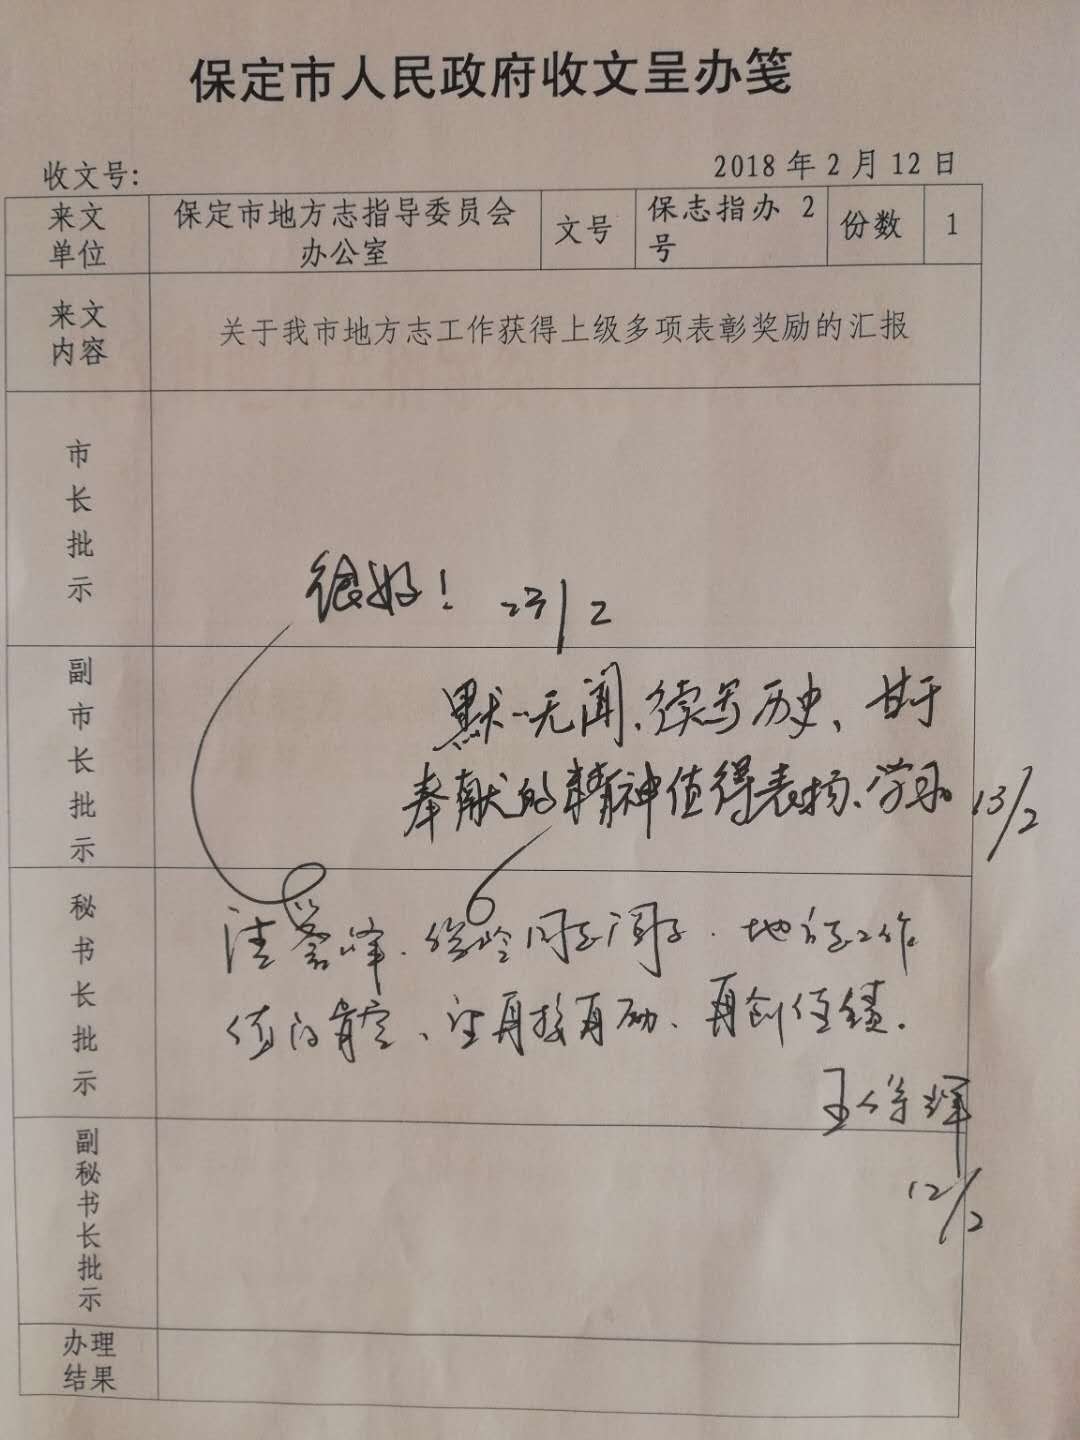 保定市人民政府收文呈办笺
收文号:
2018 年 2 月 12 日
来文
单位
保定市地方志指导委员会
办公室
文号
保志指办 2
号
份数
1
来文
内容
关于我市地方志工作获得上级多项表彰奖励的汇报
市
长
批
示
很好! 23/2
副
市
长
批
示
默默无闻、续写历史、甘于
奉献的精神值得表扬、学习 13/2
秘
书
长
批
示
请誉峰、 岭同志阅示. 地方志工作
值得肯定、望再接再励、再创佳绩.
王 辉
12/2
副
秘
书
长
批
示
办理
结果